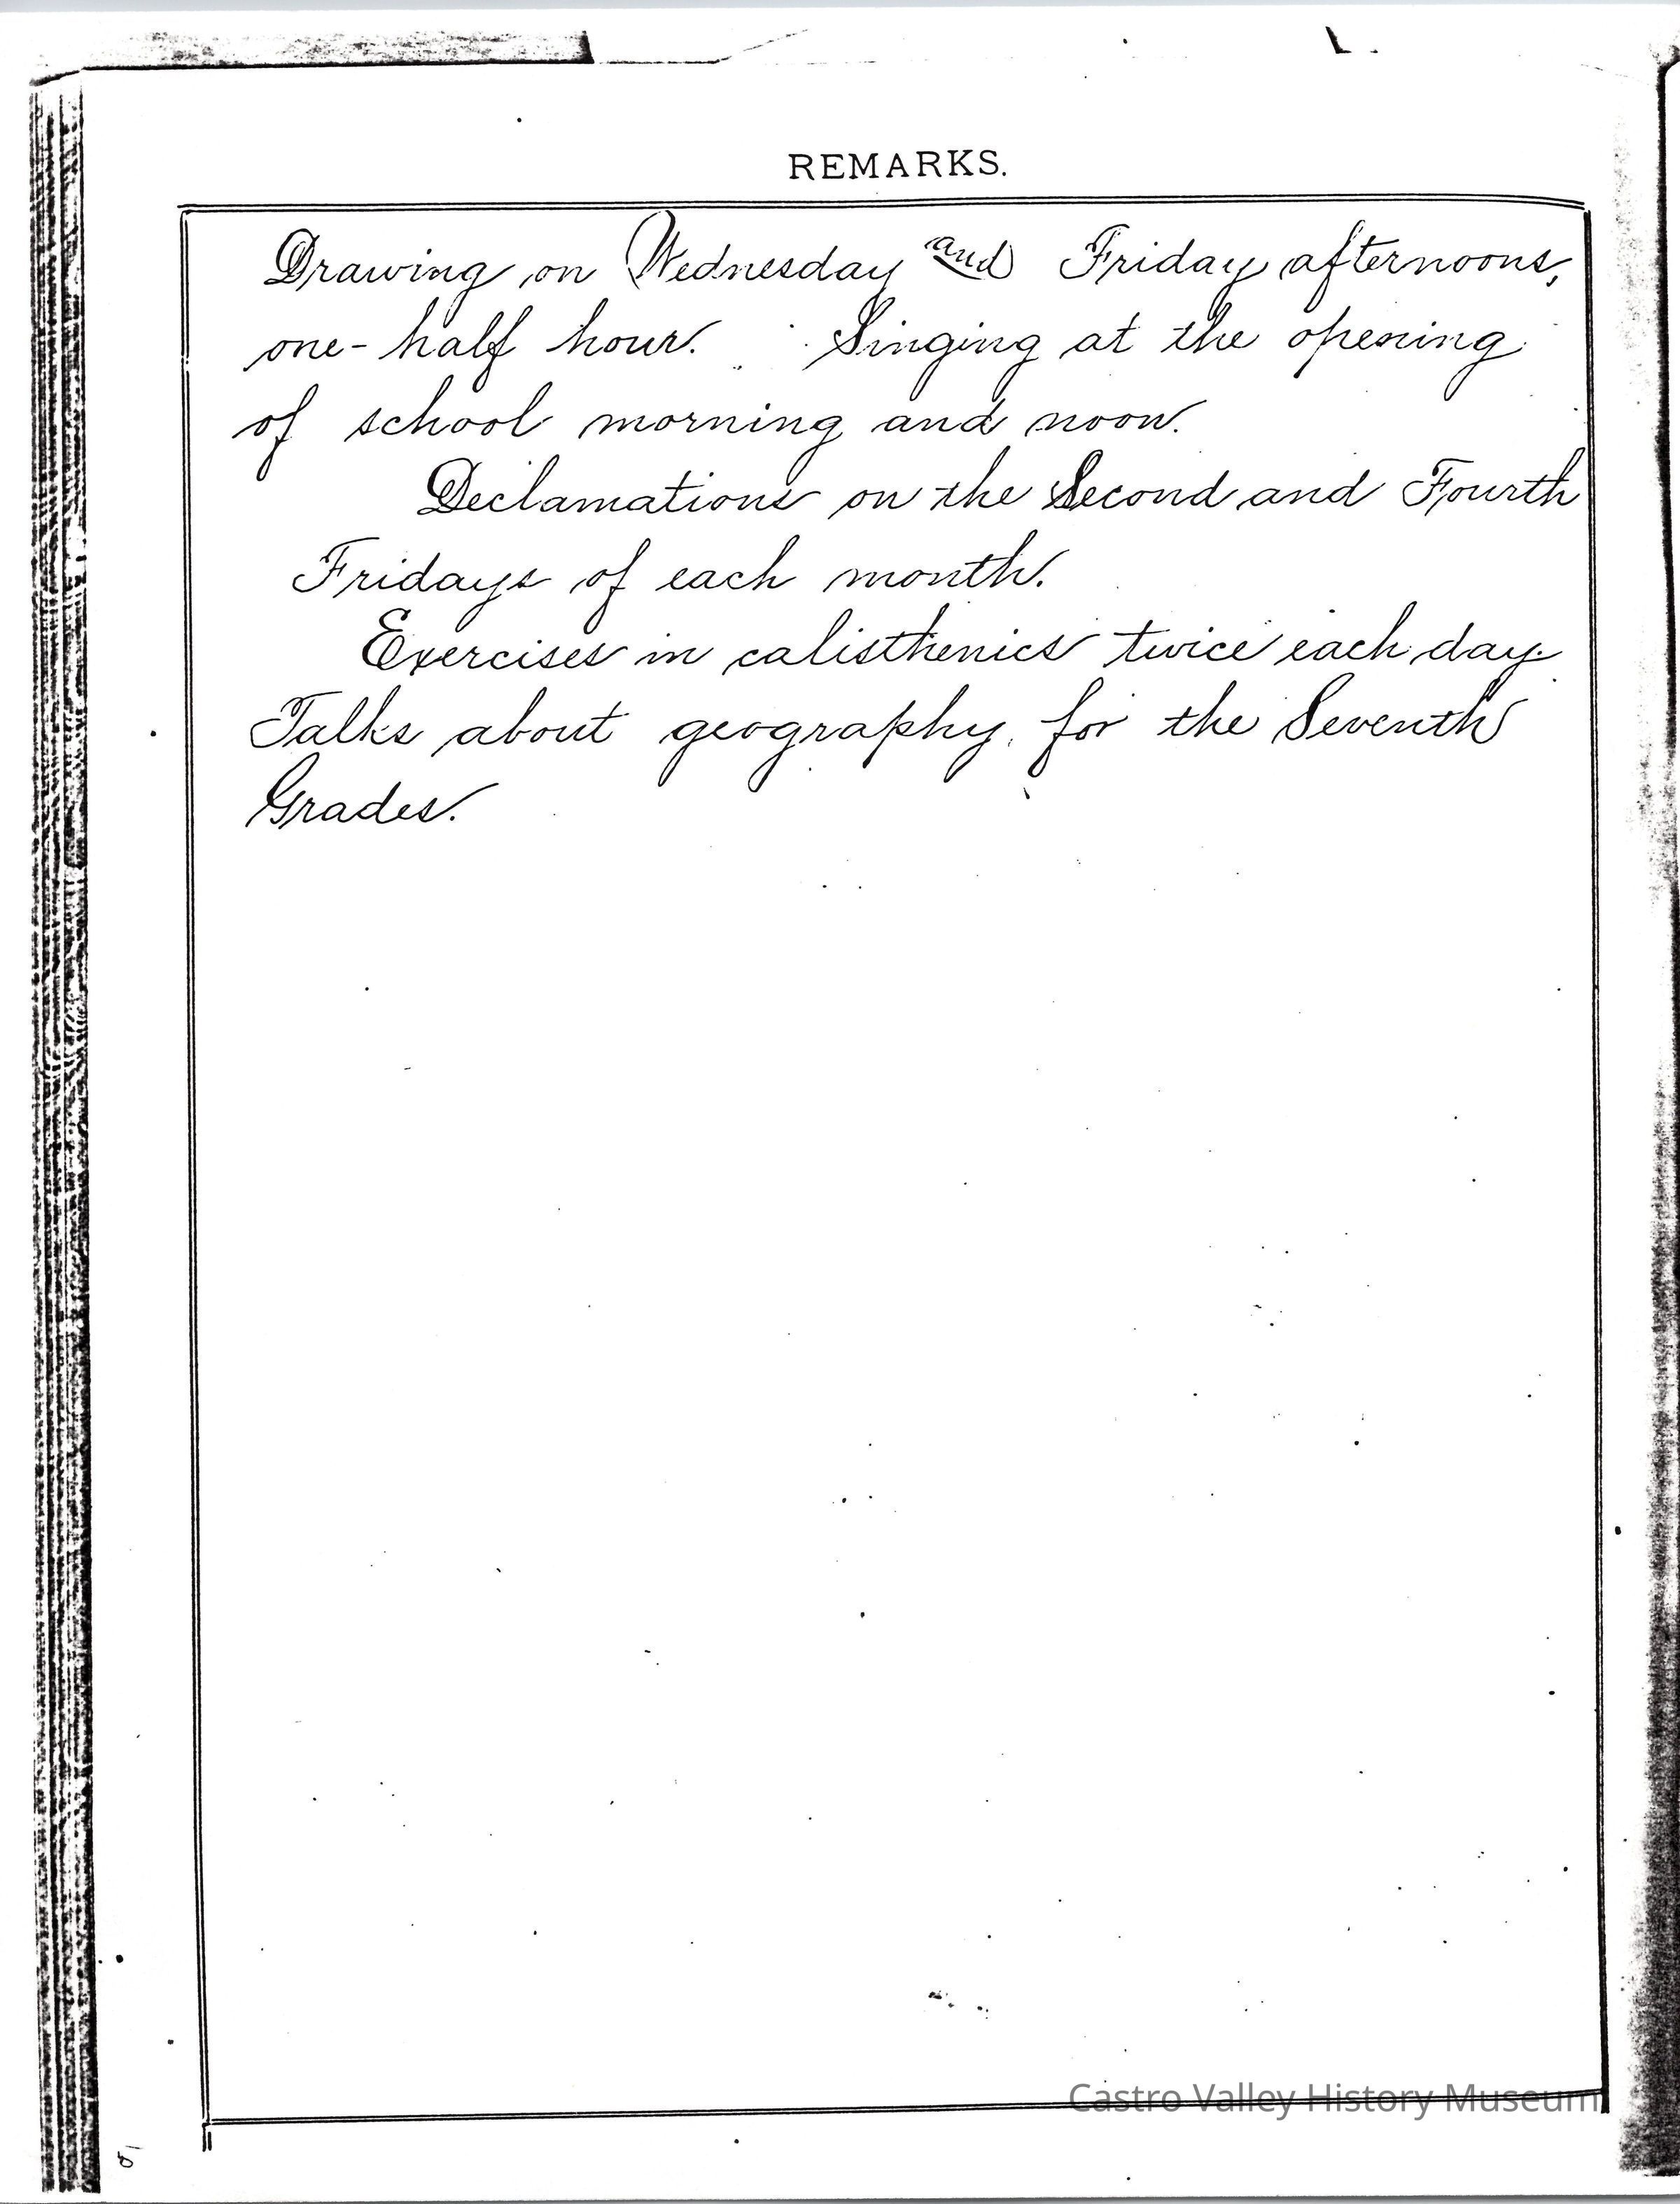 REMARKS.
Drawing on Wednesday and Friday afternoons,
one-half hour. Singing at the opening
of school morning and noon.
Declamations on the Second and Fourth
Fridays of each month.
Exercises in calisthenics twice each day.
Talks about geography, for the Seventh
Grades.
Castro Valley History Museum